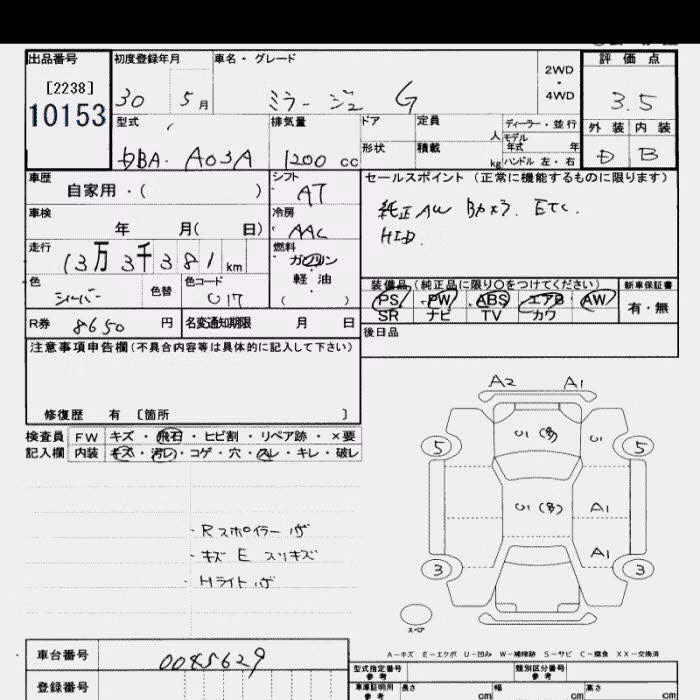 出品番号 初度登録年月 車名・グレード 2WD・4WD 評価点
[2238]
10153
30 5月 ミラージュ G 3.5
型式 排気量 ドア 定員 人 ディーラー・並行 外装 内装
モデル年式 年
DBA・A03A 1200 cc 形状 積載 kg ハンドル 左・右 D B
車歴 シフト セールスポイント(正常に機能するものに限ります)
自家用・( ) AT
純正AW Bカメラ. ETC.
車検 冷房
年 月( 日) AAC HID.
走行 燃料
13万3千381km ガソリン
軽油
( )
装備品(純正品に限り○をつけてください) 新車保証書
色 色替 色コード PS PW ABS エアB AW 有・無
シルバー 017 SR ナビ TV カワ
R券 8650 円 名変通知期限 月 日 後日品
注意事項申告欄(不具合内容等は具体的に記入して下さい)
修復歴 有 [箇所 ]
検査員 FW キズ・飛石・ヒビ割・リペア跡・×要
記入欄 内装 キズ・汚レ・コゲ・穴・スレ・キレ・破レ
A2 A1
U1(多) U1
5 5
U1(多) A1
A1
3 3
・Rスポイラー キズ
・キズ E スリキズ
・Hライト キズ
スペア
A-キズ E-エクボ U-凹み W-補修跡 S-サビ C-腐食 XX-交換済
車台番号 0085629
型式指定番号 参考 類別区分番号 参考
登録番号 車庫証明用 参考 長さ cm 幅 cm 高さ cm